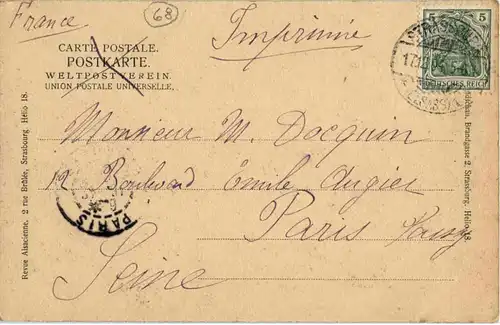 France
68
Imprimé
CARTE POSTALE.
POSTKARTE.
WELTPOSTVEREIN.
UNION POSTALE UNIVERSELLE.
5 5
DEUTSCHES REICH
Monsieur M. Docquin
12 Boulevard Émile Augier
Paris Passy
Seine
PARIS
Revue Alsacienne, 2 rue Brûlée, Strasbourg. Hélio 18.
Brandgasse 2, Strasburg. Helio 18.